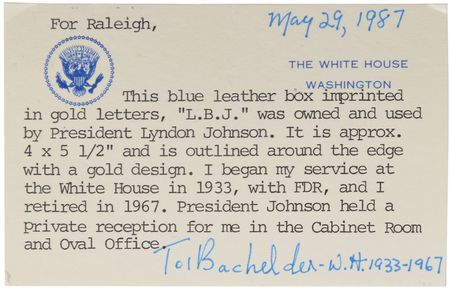 For Raleigh,
May 29, 1987
THE WHITE HOUSE
WASHINGTON
This blue leather box imprinted
in gold letters, "L.B.J." was owned and used
by President Lyndon Johnson. It is approx.
4 x 5 1/2" and is outlined around the edge
with a gold design. I began my service at
the White House in 1933, with FDR, and I
retired in 1967. President Johnson held a
private reception for me in the Cabinet Room
and Oval Office.
Toi Bachelder - W.H. 1933-1967